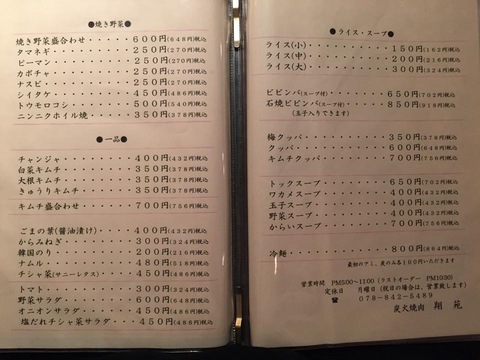 ●焼き野菜●
焼き野菜盛合わせ・・・・・・600円(648円)税込
タマネギ・・・・・・・・・・250円(270円)税込
ピーマン・・・・・・・・・・250円(270円)税込
カボチャ・・・・・・・・・・250円(270円)税込
ナスビ・・・・・・・・・・・250円(270円)税込
シイタケ・・・・・・・・・・450円(486円)税込
トウモロコシ・・・・・・・・500円(540円)税込
ニンニクホイル焼・・・・・・350円(378円)税込
●一品●
チャンジャ・・・・・・・・・400円(432円)税込
白菜キムチ・・・・・・・・・350円(378円)税込
大根キムチ・・・・・・・・・350円(378円)税込
きゅうりキムチ・・・・・・・350円(378円)税込
キムチ盛合わせ・・・・・・・700円(756円)税込
ごまの葉(醤油漬け)・・・・・400円(432円)税込
からみねぎ・・・・・・・・・300円(324円)税込
韓国のり・・・・・・・・・・200円(216円)税込
ナムル・・・・・・・・・・・480円(518円)税込
チシャ菜(サニーレタス)・・・・450円(486円)税込
トマト・・・・・・・・・・・300円(324円)税込
野菜サラダ・・・・・・・・・600円(648円)税込
オニオンサラダ・・・・・・・450円(486円)税込
塩だれチシャ菜サラダ・・・・450円(486円)税込
●ライス・スープ●
ライス(小)・・・・・・・・・150円(162円)税込
ライス(中)・・・・・・・・・200円(216円)税込
ライス(大)・・・・・・・・・300円(324円)税込
ビビンバ(スープ付)・・・・・・650円(702円)税込
石焼ビビンバ(スープ付)・・・・850円(918円)税込
(玉子入りできます)
梅クッパ・・・・・・・・・・350円(378円)税込
クッパ・・・・・・・・・・・600円(648円)税込
キムチクッパ・・・・・・・・700円(756円)税込
トックスープ・・・・・・・・650円(702円)税込
ワカメスープ・・・・・・・・400円(432円)税込
玉子スープ・・・・・・・・・400円(432円)税込
野菜スープ・・・・・・・・・400円(432円)税込
からいスープ・・・・・・・・500円(540円)税込
冷麺・・・・・・・・・・・・800円(864円)税込
営業時間 PM5:00～11:00(ラストオーダー PM10:30)
定休日 月曜日(祝日の場合は、営業致します)
☎ 078-842-5489
炭火焼肉 翔苑